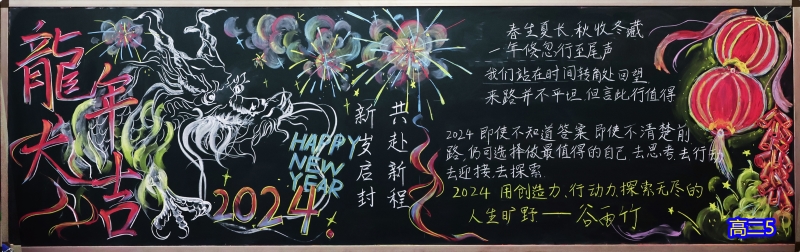 龍年
大吉
HAPPY
NEW
YEAR
2024
共赴新程
新岁启封
春生夏长,秋收冬藏
一年倏忽行至尾声
我们站在时间转角处回望
来路并不平坦,但言此行值得
2024 即使不知道答案,即使不清楚前
路,仍可选择做最值得的自己,去思考,去行动
去迎接,去探索.
2024 用创造力、行动力探索无尽的
人生旷野——谷雨竹
高二5